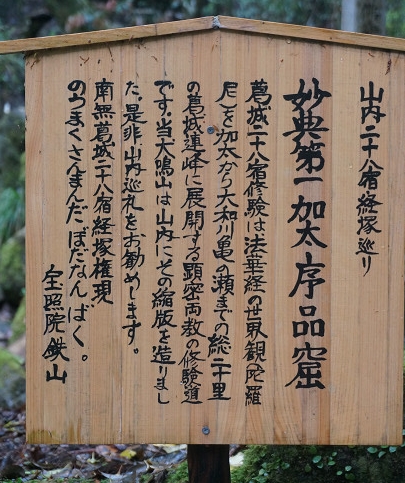 山内二十八宿経塚巡り
妙典第一加太序品窟
葛城二十八宿修験は法華経の世界観陀羅
尼を加太から大和川亀の瀬までの総二十里
の葛城連峰に展開する顕密両教の修験道
です。当大鳴山は山内にその縮版を造りまし
た。是非、山内巡礼をお勧めします。
南無葛城二十八宿経塚権現
のうまくさんまんだ ぼだなん ばく。
宝照院鉄山